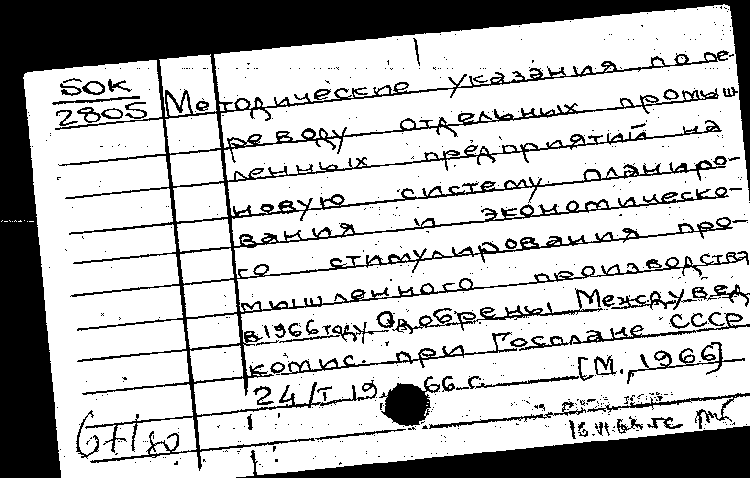 50К
2805
Методические указания по пе
реводу отдельных промыш
ленных предприятий на
новую систему планиро-
вания и экономическо-
го стимулирования про-
мышленного производства
в 1966 году Одобрены Междувед.
комис. при Госплане СССР
24/I 19 66 г. [М., 1966]